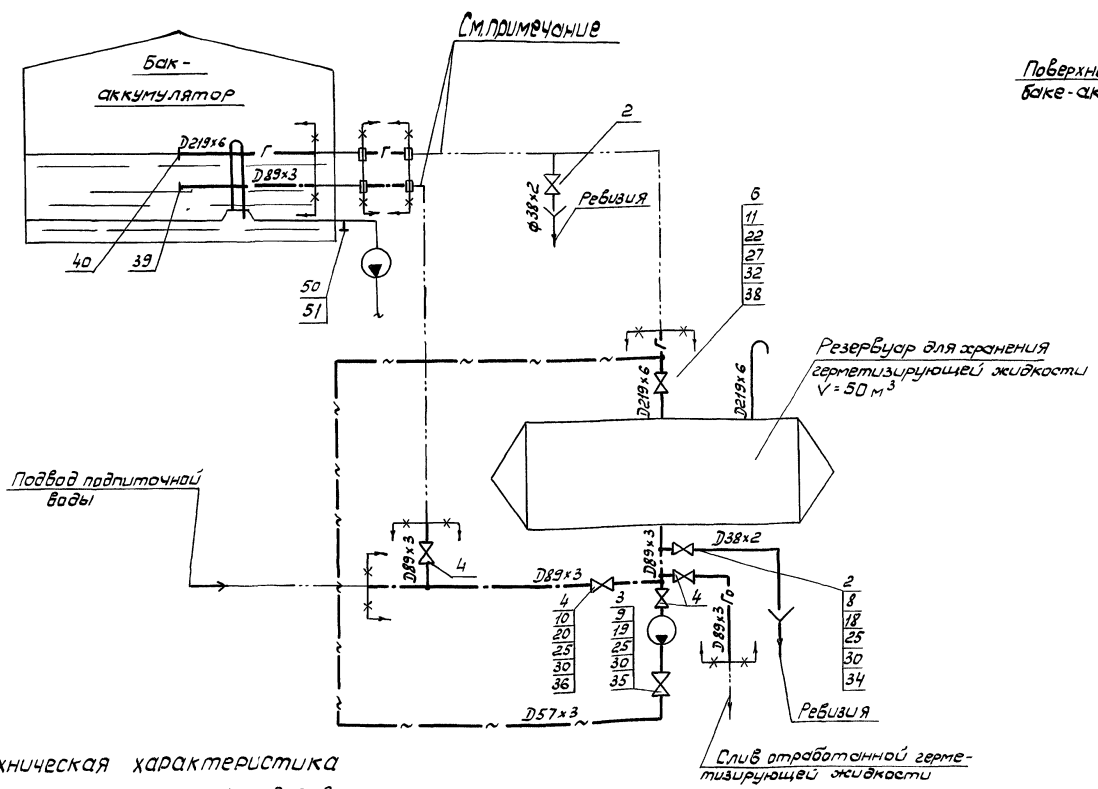 См. примечание
Поверхн
баке-ак
Бак-
аккумулятор
D219×6
Г
Г
D89×3
40
39
50
51
2
ф38×2
Ревизия
6
11
22
27
32
38
Г
D219×6
D219×6
Резервуар для хранения
герметизирующей жидкости
V = 50 м³
Подвод подпиточной
воды
D89×3
4
D89×3
4
10
20
25
30
36
3
9
19
25
30
35
D89×3
D38×2
4
Го
D89×3
2
8
18
25
30
34
Ревизия
D57×3
Слив отработанной герме-
тизирующей жидкости
хническая характеристика